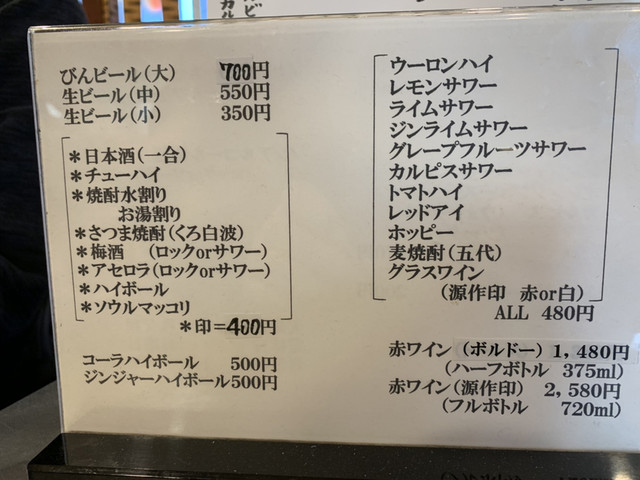 びんビール(大) 700円
生ビール(中) 550円
生ビール(小) 350円
＊日本酒(一合)
＊チューハイ
＊焼酎水割り
お湯割り
＊さつま焼酎(くろ白波)
＊梅酒 (ロックorサワー)
＊アセロラ(ロックorサワー)
＊ハイボール
＊ソウルマッコリ
＊印＝400円
コーラハイボール 500円
ジンジャーハイボール500円
ウーロンハイ
レモンサワー
ライムサワー
ジンライムサワー
グレープフルーツサワー
カルピスサワー
トマトハイ
レッドアイ
ホッピー
麦焼酎(五代)
グラスワイン
(源作印 赤or白)
ALL 480円
赤ワイン (ボルドー) 1,480円
(ハーフボトル 375ml)
赤ワイン(源作印) 2,580円
(フルボトル 720ml)